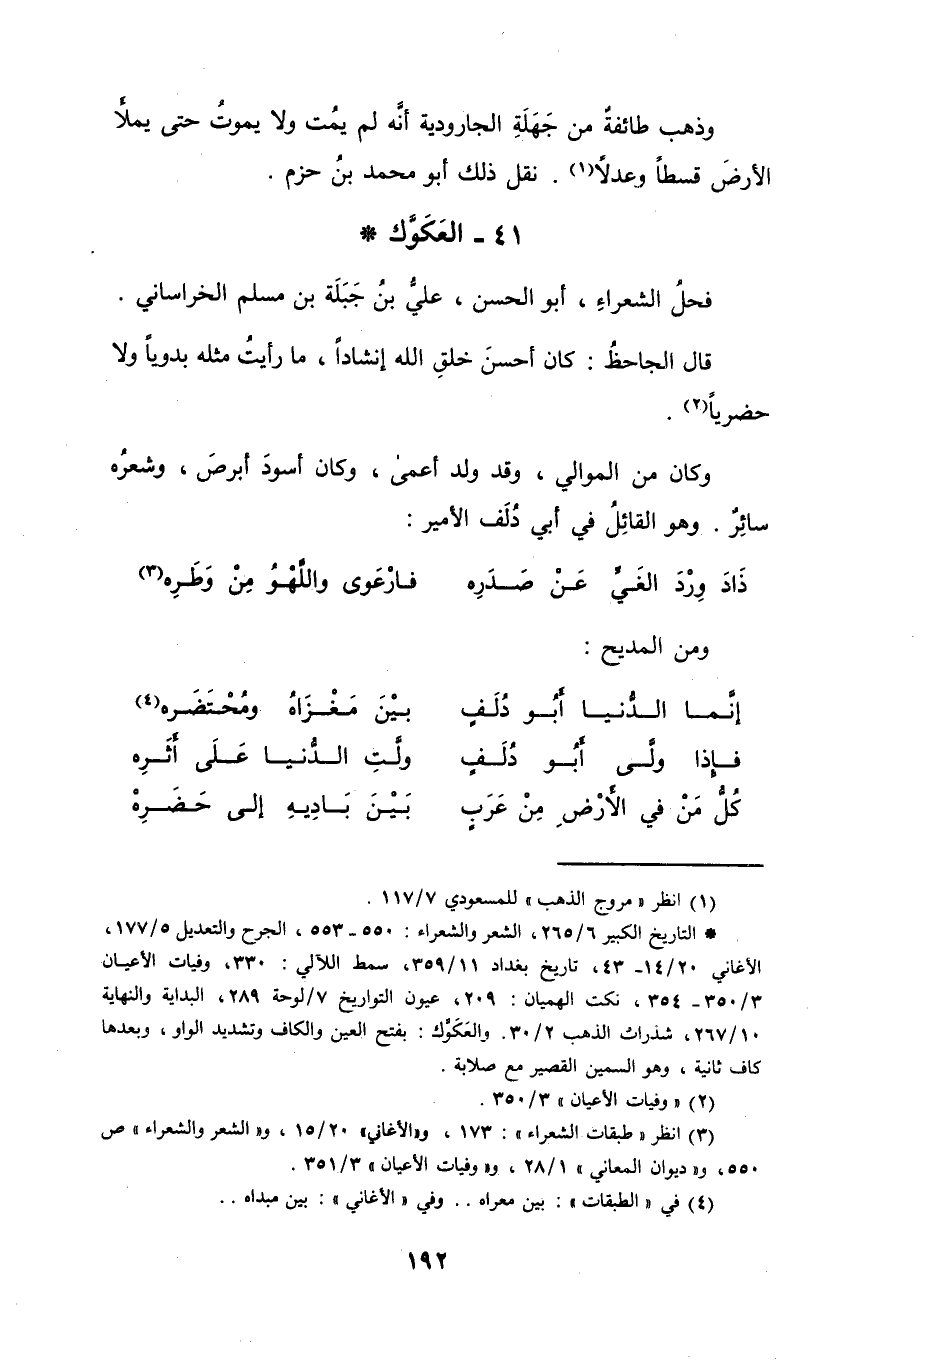 وذهب طائفةٌ من جَهَلَةِ الجارودية أنَّه لم يمُت ولا يموتُ حتى يملأَ
الأرضَ قسطاً وعدلاً(١) . نقل ذلك أبو محمد بنُ حزم .
٤١ ـ العَكَوَّك *
فحلُ الشعراءِ ، أبو الحسن ، عليُّ بنُ جَبَلَة بن مسلم الخراساني .
قال الجاحظُ : كان أحسنَ خلقِ الله إنشاداً ، ما رأيتُ مثله بدوياً ولا
حضرياً(٢) .
وكان من الموالي ، وقد ولد أعمىٰ ، وكان أسودَ أبرصَ ، وشعرُه
سائِرٌ . وهو القائِلُ في أبي دُلَف الأمير :
ذَادَ وِرْدَ الغَيِّ عَـنْ صَـدَرِه فـارْعَوى واللَّهْـوُ مِنْ وَطَـرِه(٣)
ومن المديح :
إنَّمـا الـدُّنيـا أَبُـو دُلَـفٍ بيْنَ مَـغْـزَاهُ ومُحْـتَضَـرِه(٤)
فـإِذا ولَّـى أَبُـو دُلَـفٍ ولَّتِ الـدُّنيـا عَـلَى أَثَـرِه
كُلُّ مَنْ في الأَرْضِ مِنْ عَرَبٍ بَـيْـنَ بَـادِيـهِ إلى حَـضَـرِهْ
(١) انظر « مروج الذهب » للمسعودي ١١٧/٧ .
* التاريخ الكبير ٢٦٥/٦، الشعر والشعراء : ٥٥٠ ـ ٥٥٣ ، الجرح والتعديل ١٧٧/٥،
الأغاني ١٤/٢٠ـ ٤٣، تاريخ بغداد ٣٥٩/١١، سمط اللآلي : ٣٣٠، وفيات الأعيـان
٣٥٠/٣ ـ ٣٥٤ ، نكت الهميان : ٢٠٩، عيون التواريخ ٧/لوحة ٢٨٩، البداية والنهاية
٢٦٧/١٠، شذرات الذهب ٣٠/٢. والعَكَوَّك : بفتح العين والكاف وتشديد الواو ، وبعدها
كاف ثانية ، وهو السمين القصير مع صلابة .
(٢) « وفيات الأعيان » ٣٥٠/٣ .
(٣) انظر « طبقات الشعراء » : ١٧٣ ، و«الأغاني» ١٥/٢٠ ، و« الشعر والشعراء » ص
٥٥٠، و« ديوان المعاني » ٢٨/١ ، و« وفيات الأعيان » ٣٥١/٣ .
(٤) في « الطبقات » : بين معراه .. وفي « الأغاني » : بين مبداه ..
١٩٢